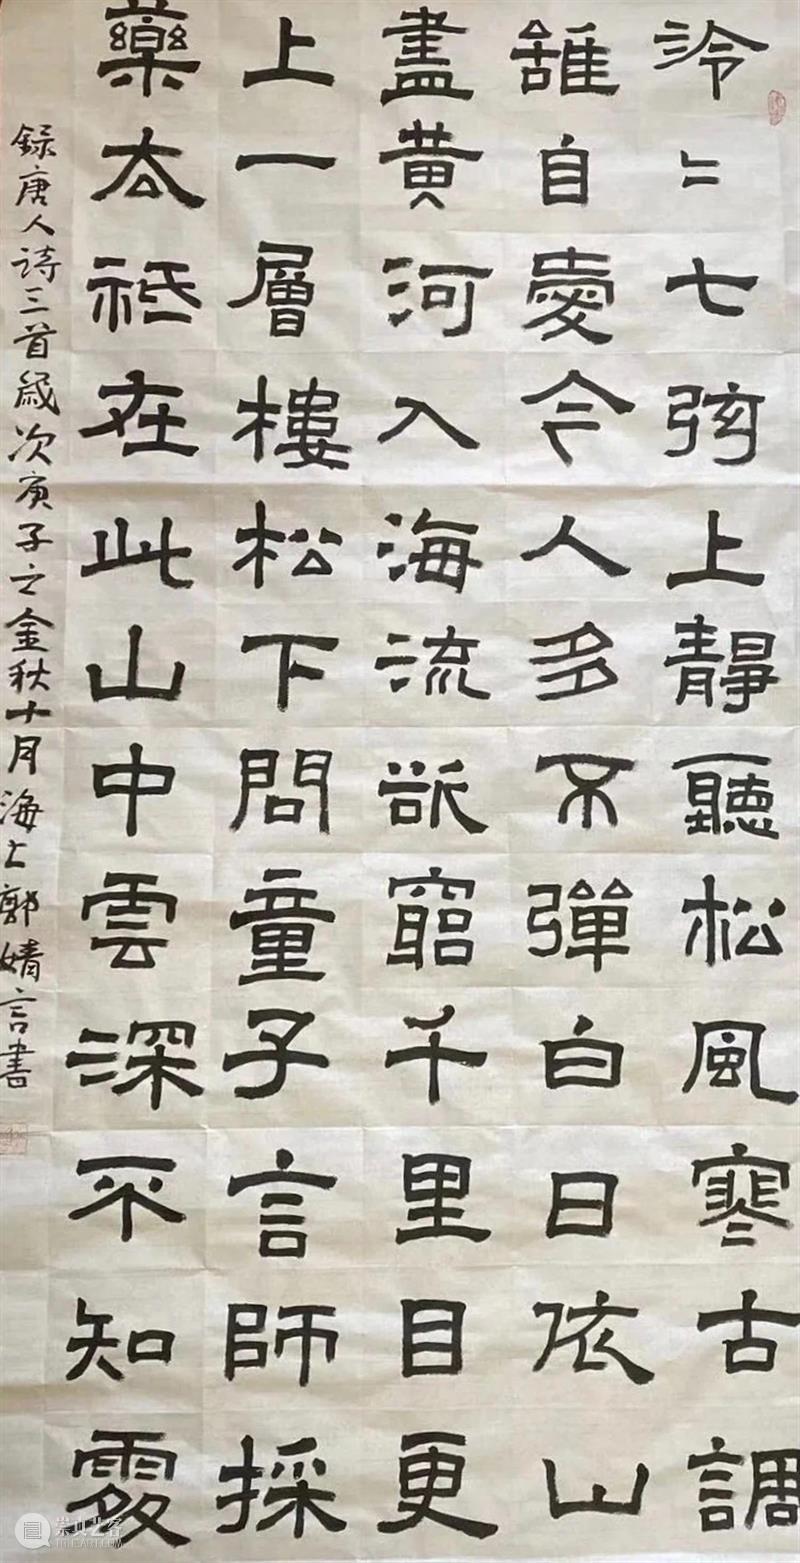 泠〻七弦上靜聽松風寒古調
雖自愛今人多不彈白日依山
盡黃河入海流欲窮千里目更
上一層樓松下問童子言師採
藥去祗在此山中雲深不知處
録唐人詩三首歲次庚子之金秋十月海上郭婧言書
崇真艺客